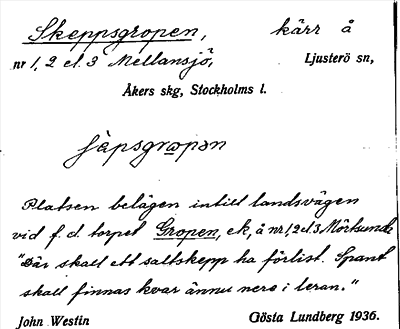 Skeppsgropen, kärr å
nr 1, 2 el. 3 Mellansjö, Ljusterö sn,
Åkers skg, Stockholms l.
Platsen belägen intill landsvägen
vid f. d. torpet Gropen, ek, å nr 1, 2 el. 3 Mörtsunda
"Där skall ett saltskepp ha förlist. Spant
skall finnas kvar ännu nere i leran."
John Westin Gösta Lundberg 1936.